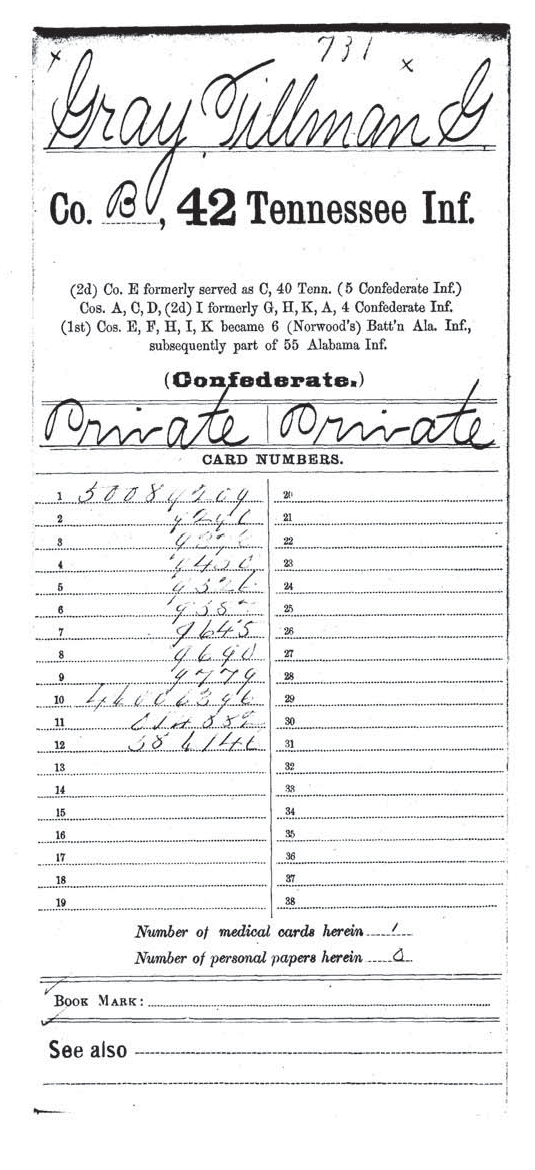 731
x x
Gray, Tillman G.
Co. B, 42 Tennessee Inf.
(2d) Co. E formerly served as C, 40 Tenn. (5 Confederate Inf.)
Cos. A, C, D, (2d) I formerly G, H, K, A, 4 Confederate Inf.
(1st) Cos. E, F, H, I, K became 6 (Norwood's) Batt'n Ala. Inf.,
subsequently part of 55 Alabama Inf.
(Confederate.)
Private | Private
CARD NUMBERS.
1 50084209 20
2 21
3 22
4 23
5 24
6 25
7 9645 26
8 9690 27
9 9779 28
10 46006396 29
11 30
12 31
13 32
14 33
15 34
16 35
17 36
18 37
19 38
Number of medical cards herein 1
Number of personal papers herein 0
BOOK MARK:
See also